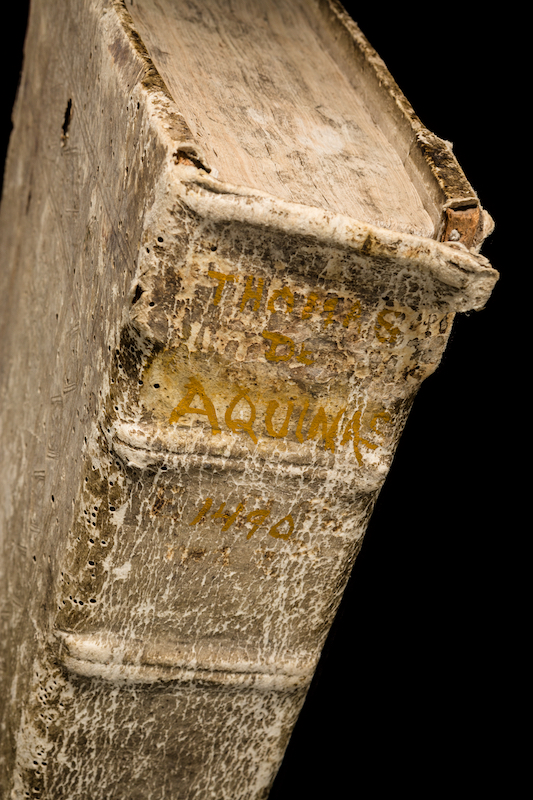 THOMAS
DE
AQUINAS
1490